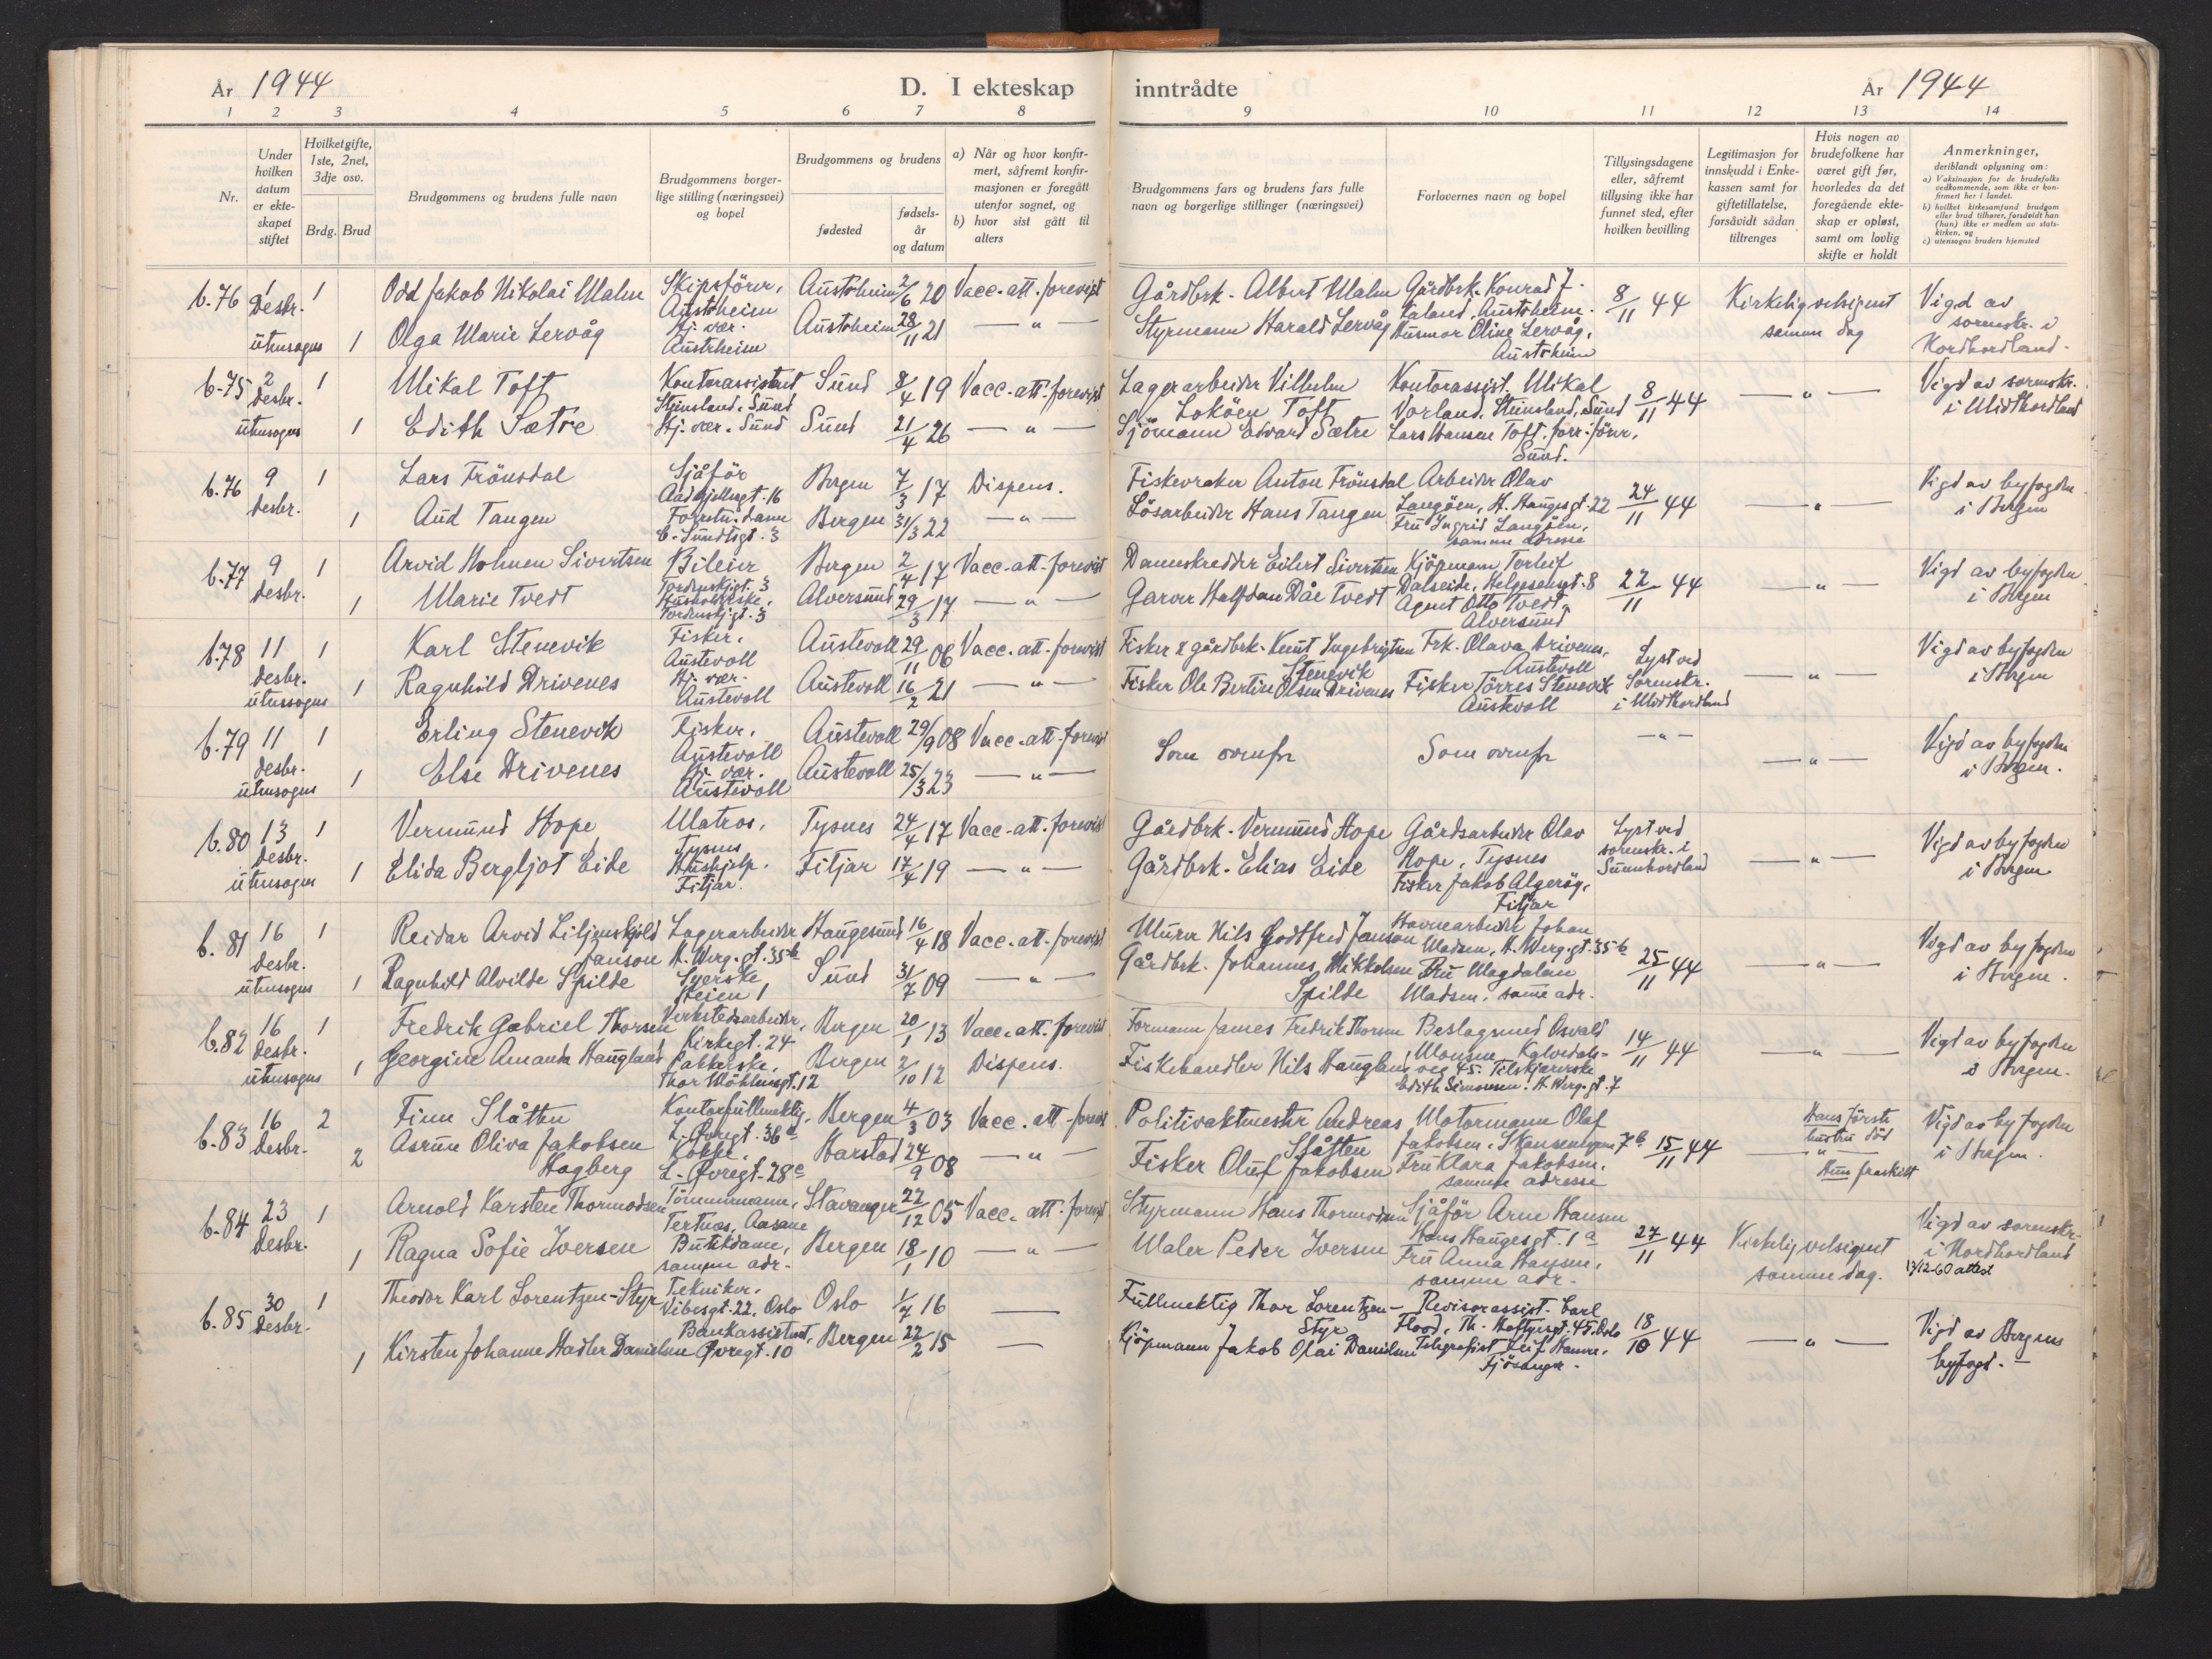 År 1944
D. I ekteskap
inntrådte
År 1944
1 2 3 4 5 6 7 8
9 10 11 12 13 14
Nr.
Under hvilken datum er ekteskapet stiftet
Hvilket gifte, 1ste, 2net, 3dje osv.
Brdg. Brud
Brudgommens og brudens fulle navn
Brudgommens borgerlige stilling (næringsvei) og bopel
Brudgommens og brudens
fødested
fødselsår og datum
a) Når og hvor konfirmert, såfremt konfirmasjonen er foregått utenfor sognet, og
b) hvor sist gått til alters
Brudgommens fars og brudens fars fulle navn og borgerlige stillinger (næringsvei)
Forlovernes navn og bopel
Tillysingsdagene eller, såfremt tillysing ikke har funnet sted, efter hvilken bevilling
Legitimasjon for innskudd i Enkekassen samt for giftetillatelse, forsåvidt sådan tiltrenges
Hvis nogen av brudefolkene har været gift før, hvorledes da det foregående ekteskap er opløst, samt om lovlig skifte er holdt
Anmerkninger,
deriblandt oplysning om:
a) Vaksinasjon for de brudefolks vedkommende, som ikke er konfirmert her i landet.
b) hvilket kirkesamfund brudgom eller brud tilhører, forsåvidt han (hun) ikke er medlem av statskirken, og
c) utensogns bruders hjemsted
b.76 1 Desbr. utensogns 1
Odd Jakob Nikolai Malm Skipsförer, Austrheim Austrheim 2/6 20 Vacc. att. forevist
1 Olga Marie Lervåg Hj. vær. Austrheim Austrheim 28/11 21 — " —
Gårdbrk. Albert Malm Gårdbrk. Konrad J. Austrheim. 8/11 44 Kirkelig velsignet samme dag Vigd av sorenskr. i Nordhordland.
Styrmann Harald Lervåg Husmor Oline Lervåg, Austrheim
b.75 2 desbr. utensogns 1
Mikal Toft Kontorassistent Steinsland, Sund Sund 8/4 19 Vacc. att. forevist
1 Edith Sætre Hj. vær. Sund Sund 21/4 26 — " —
Lagerarbeider Vilhelm Lokøen Toft Kontorassist. Mikal Vorland, Steinsland, Sund 8/11 44 — " — Vigd av sorenskr. i Midthordland
Sjömann Edvard Sætre Lars Hansen Toft, Sund.
b.76 9 desbr. 1
Lars Frönsdal Sjåför Bergen 7/3 17 Dispens.
1 Aud Tangen C. Sundtsgt. 3 Bergen 31/3 22 — " —
Fiskevraker Anton Frönsdal Arbeider Olav Langöen, H. Haugesgt. 22 24/11 44 — " — Vigd av byfogden i Bergen
Lösarbeider Hans Tangen Fru Ingrid Langöen, samme adresse
b.77 9 desbr. 1
Arvid Holmen Sivertsen Bileier Tordenskjgt. 3 Bergen 2/4 17 Vacc. att. forevist
1 Marie Tvedt Tordenskj.gt. 3 Alversund 29/3 17 — " —
Dameskredder Eilert Sivertsen Kjöpmann Torleif Dalseide, Helgesensgt. 8 22/11 44 — " — Vigd av byfogden i Bergen
Garver Halfdan Dåe Tvedt Agent Otto Tvedt, Alversund
b.78 11 desbr. utensogns 1
Karl Stenevik Fisker, Austevoll Austevoll 29/11 06 Vacc. att. forevist
1 Ragnhild Drivenes Hj. vær. Austevoll Austevoll 16/2 21 — " —
Fisker & gårdbrk. Knut Ingebrigtsen Stenevik Frk. Olava Drivenes, Austevoll Lyst ved Sorenskr. i Midthordland — " — Vigd av byfogden i Bergen
Fisker Ole Bertin Olsen Drivenes Fisker Törres Stenevik Austevoll
b.79 11 desbr. utensogns 1
Erling Stenevik Fisker, Austevoll Austevoll 29/9 08 Vacc. att. forevist
1 Else Drivenes Hj. vær. Austevoll Austevoll 25/3 23 — " —
Som ovenfor Som ovenfor — " — — " — Vigd av byfogden i Bergen.
b.80 13 desbr. utensogns 1
Vermund Hope Matros, Tysnes Tysnes 24/4 17 Vacc. att. forevist
1 Elida Bergljot Eide Hushjelp. Fitjar. Fitjar 17/4 19 — " —
Gårdbrk. Vermund Hope Gårdsarbeider Olav Hope, Tysnes Lyst ved sorenskr. i Sunnhordland — " — Vigd av byfogden i Bergen
Gårdbrk. Elias Eide Fisker Jakob Algeröy, Fitjar
b.81 16 desbr. utensogns 1
Reidar Arvid Liljenskjold Janson Lagerarbeider H. Werg. gt. 35b Haugesund 16/4 18 Vacc. att. forevist
1 Ragnhild Alvilde Spilde Syerske Heien 1 Sund 31/7 09 — " —
Murer Nils Godtfred Janson Havnearbeider Johan Madsen, H. Werg. gt. 35b 25/11 44 — " — Vigd av byfogden i Bergen.
Gårdbrk. Johannes Mikkelsen Spilde Fru Magdalene Madsen, same adr.
b.82 16 desbr. utensogns 1
Fredrik Gabriel Thorsen Verkstedsarbeider, Kirkegt. 24 Bergen 20/1 13 Vacc. att. forevist
1 Georgine Amanda Haugland Pakkerske, Thor Möhlensgt. 12 Bergen 2/10 12 Dispens.
Formann James Fredrik Thorsen Beslagsmed Osvald Monsen, Kalvedalsveg 45. 14/11 44 — " — Vigd av byfogden i Bergen.
Fiskehandler Nils Haugland Tilskjærerske Edith Simonsen. H. Werg. gt. 7
b.83 16 desbr. 2
Finn Slåtten Kontorfullmektig, L. Øvregt. 36a Bergen 4/3 03 Vacc. att. forevist
2 Asrun Oliva Jakobsen Hagberg Kokke. L. Øvregt. 28c Harstad 24/9 08 — " —
Politivaktmester Andreas Slåtten Motormann Olaf Jakobsen, Skansenlgen 7b 15/11 44 — " — Hans förste hustru död Vigd av byfogden i Bergen.
Fisker Oluf Jakobsen Fru Klara Jakobsen. samme adresse Hun fraskilt
b.84 23 desbr. 1
Arnold Karsten Thormodsen Tömmermann, Tertnes, Aasane Stavanger 22/12 05 Vacc. att. forevist
1 Ragna Sofie Iversen Butikdame, samme adr. Bergen 18/1 10 — " —
Styrmann Hans Thormodsen Sjåför Arne Hansen Hans Haugesgt. 1a 27/11 44 Kirkelig velsignet samme dag. Vigd av sorenskr. i Nordhordland
Maler Peder Iversen Fru Anna Hansen, samme adr. 13/12-60 attest
b.85 30 desbr. 1
Theodor Karl Lorentzen-Styr Tekniker. Vibesgt. 22, Oslo Oslo 1/7 16 —
1 Kirsten Johanne Hadler Danielsen Bankassistent, Øvregt. 10 Bergen 22/2 15 —
Fullmektig Thor Lorentzen-Styr Revisorassist. Carl Flood, Th. Heftyesgt. 45. Oslo 18/10 44 — " — Vigd av Bergens byfogd. —
Kjöpmann Jakob Olai Danielsen Telegrafist Leif Hamre. Fjösanger.